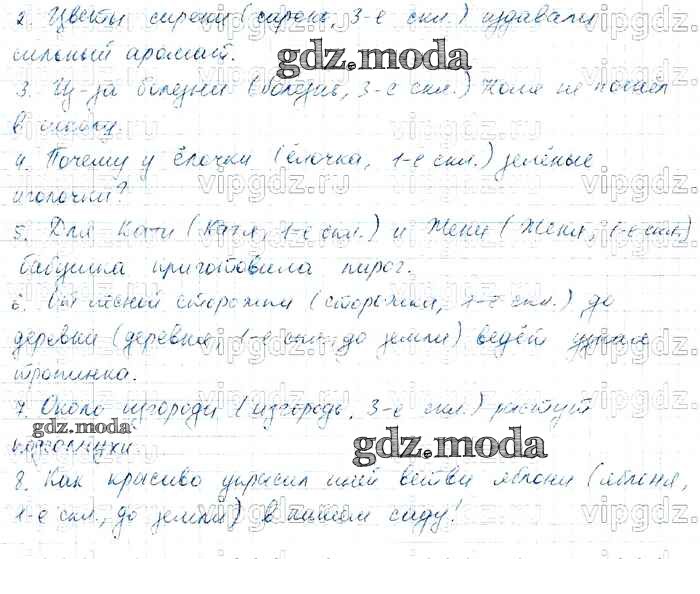 2. Цветы сирени (сирень, 3-е скл.) издавали
сильный аромат.
3. Из-за болезни (болезнь, 3-е скл.) Коля не пошёл
в школу.
4. Почему у ёлочки (ёлочка, 1-е скл.) зелёные
иголочки?
5. Для Кати (Катя, 1-е скл.) и Жени (Женя, 1-е скл.)
бабушка приготовила пирог.
6. От лесной сторожки (сторожка, 1-е скл.) до
деревни (деревня, 1-е скл., до земли) ведёт узкая
тропинка.
7. Около изгороди (изгородь, 3-е скл.) растут
подсолнухи.
8. Как красиво украсил иней ветви яблони (яблоня,
1-е скл., до земли) в нашем саду!
gdz.moda
gdz.moda
gdz.moda
vipgdz.ru